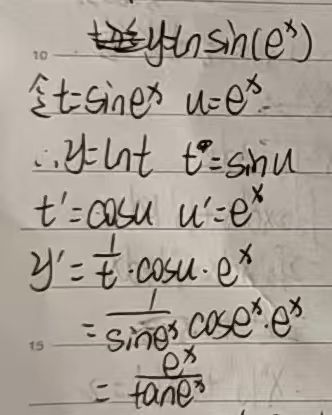 y=ln sin(e^x)
10
令t=sine^x u=e^x
∴y=lnt t=sinu
t'=cosu u'=e^x
y'=1/t·cosu·e^x
=1/sine^x cose^x·e^x
15
=e^x/tane^x